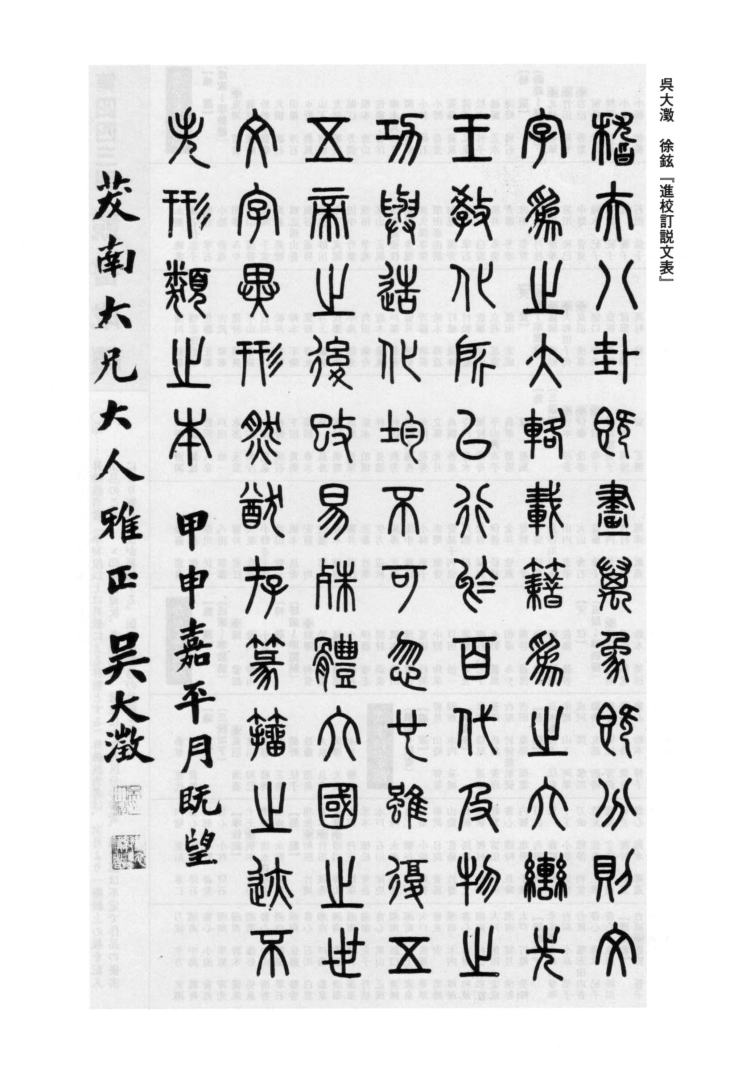 吳大澂 徐鉉『進校訂説文表』
稽夫八卦既畫萬象既分則文
字爲之大輅載籍爲之六轡先
王教化所㠯行於百代及物之
功與造化均不可忽也雖復五
五帝之後改易殊體六國之世
文字異形然猶存篆籀之迹不
失形類之本 甲申嘉平月既望
茇南大兄大人雅正 吳大澂